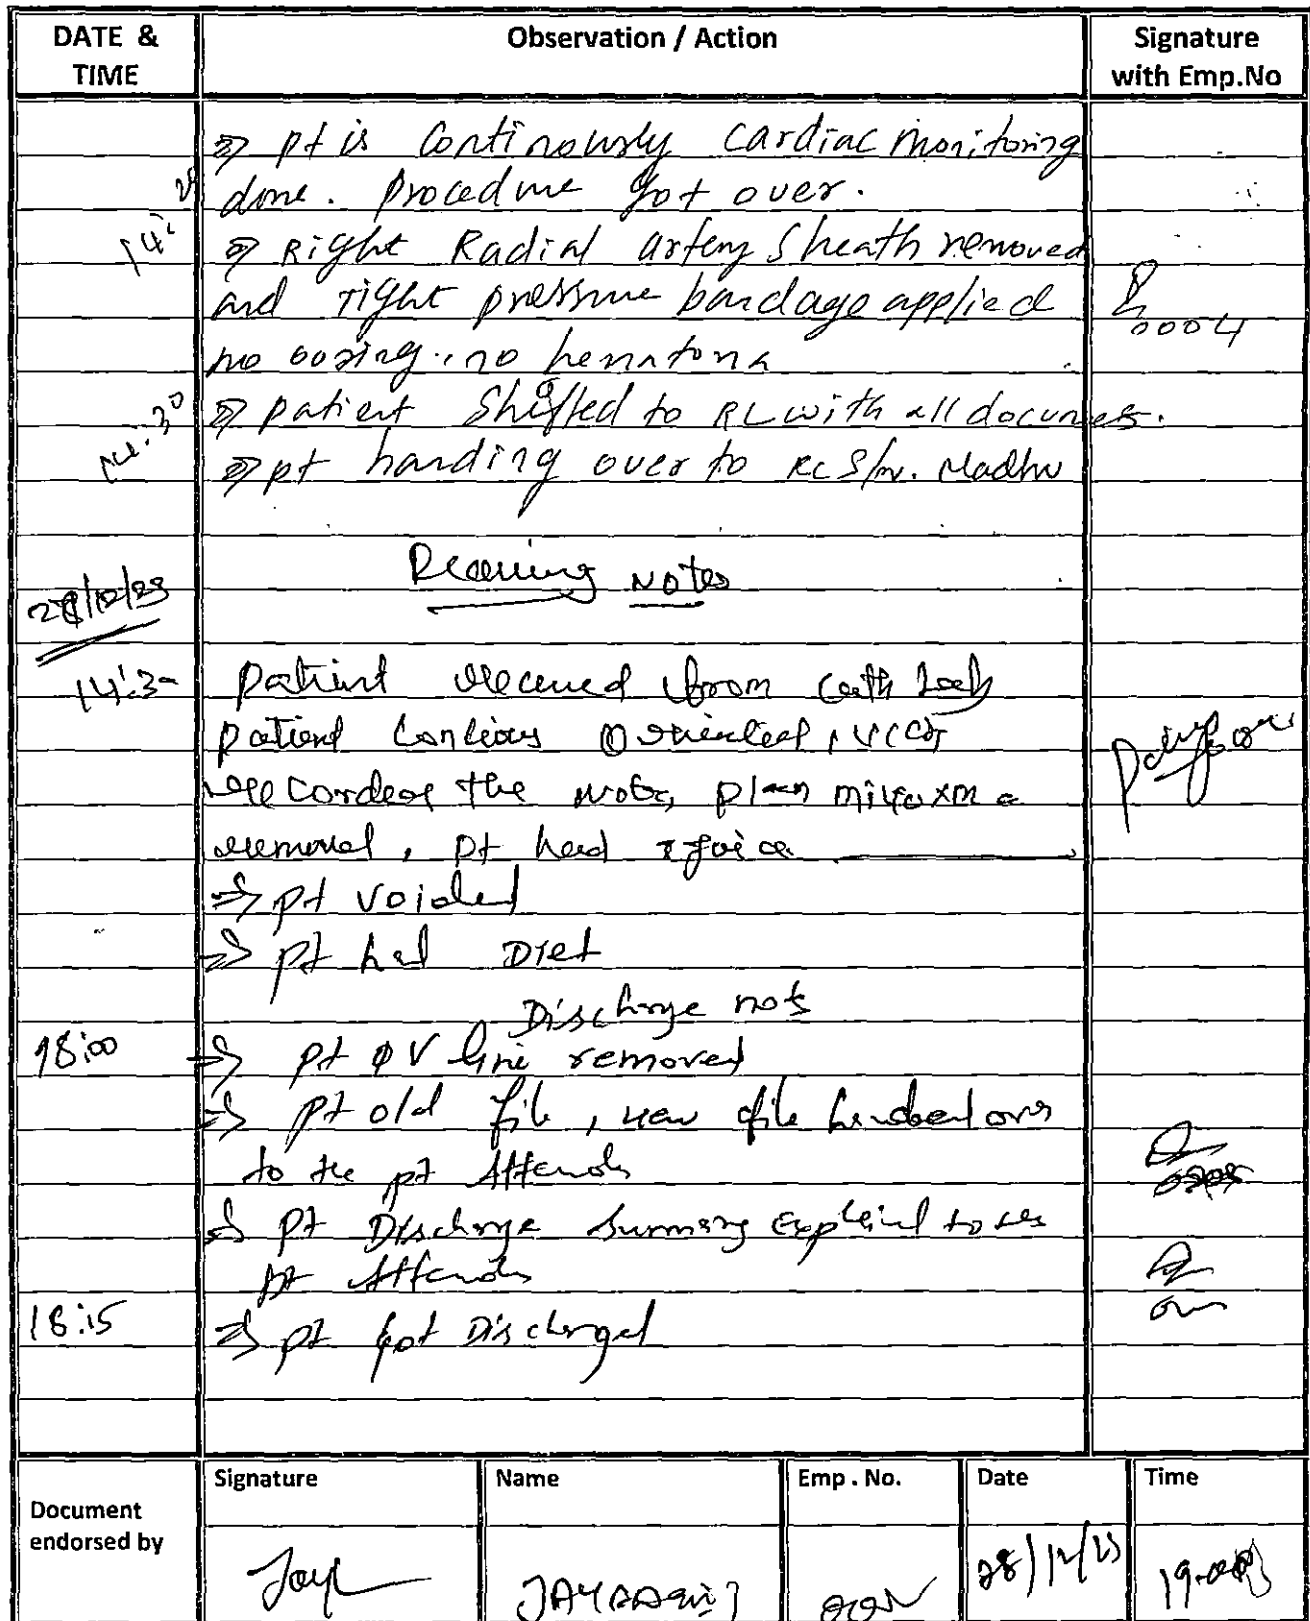 DATE & TIME
Observation / Action
Signature with Emp.No
⇒ pt is Continously cardiac monitoring
done. procedure got over.
14:
⇒ Right Radial artery Sheath removed
and right pressure bandage applied
no oozing, no hematoma
0004
14:30
⇒ patient Shifted to RL with all documets.
⇒ pt handing over to RL S/N. Madhu
Receiving Notes
28/12/23
14:30 patient received from Cath Lab
patient Concious Oriented,
recorded the notes, plan
removal, pt had
⇒ pt voided
⇒ pt had Diet
Discharge nots
18:00 ⇒ pt line removed
⇒ pt old file, new file handed over
to the pt Attends
⇒ pt Discharge Summary Explaind to
pt Attends
18:15 ⇒ pt got Discharged
Document endorsed by
Signature
Name
Emp. No.
Date
Time
28/12/23
19.00